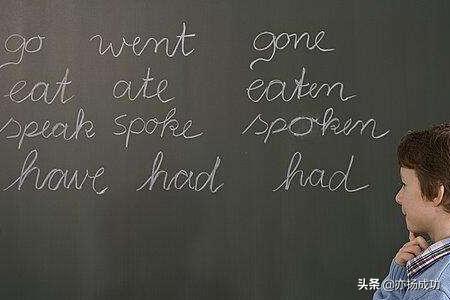 go went gone
eat ate eaten
speak spoke spoken
have had had
头条 @亦扬成功